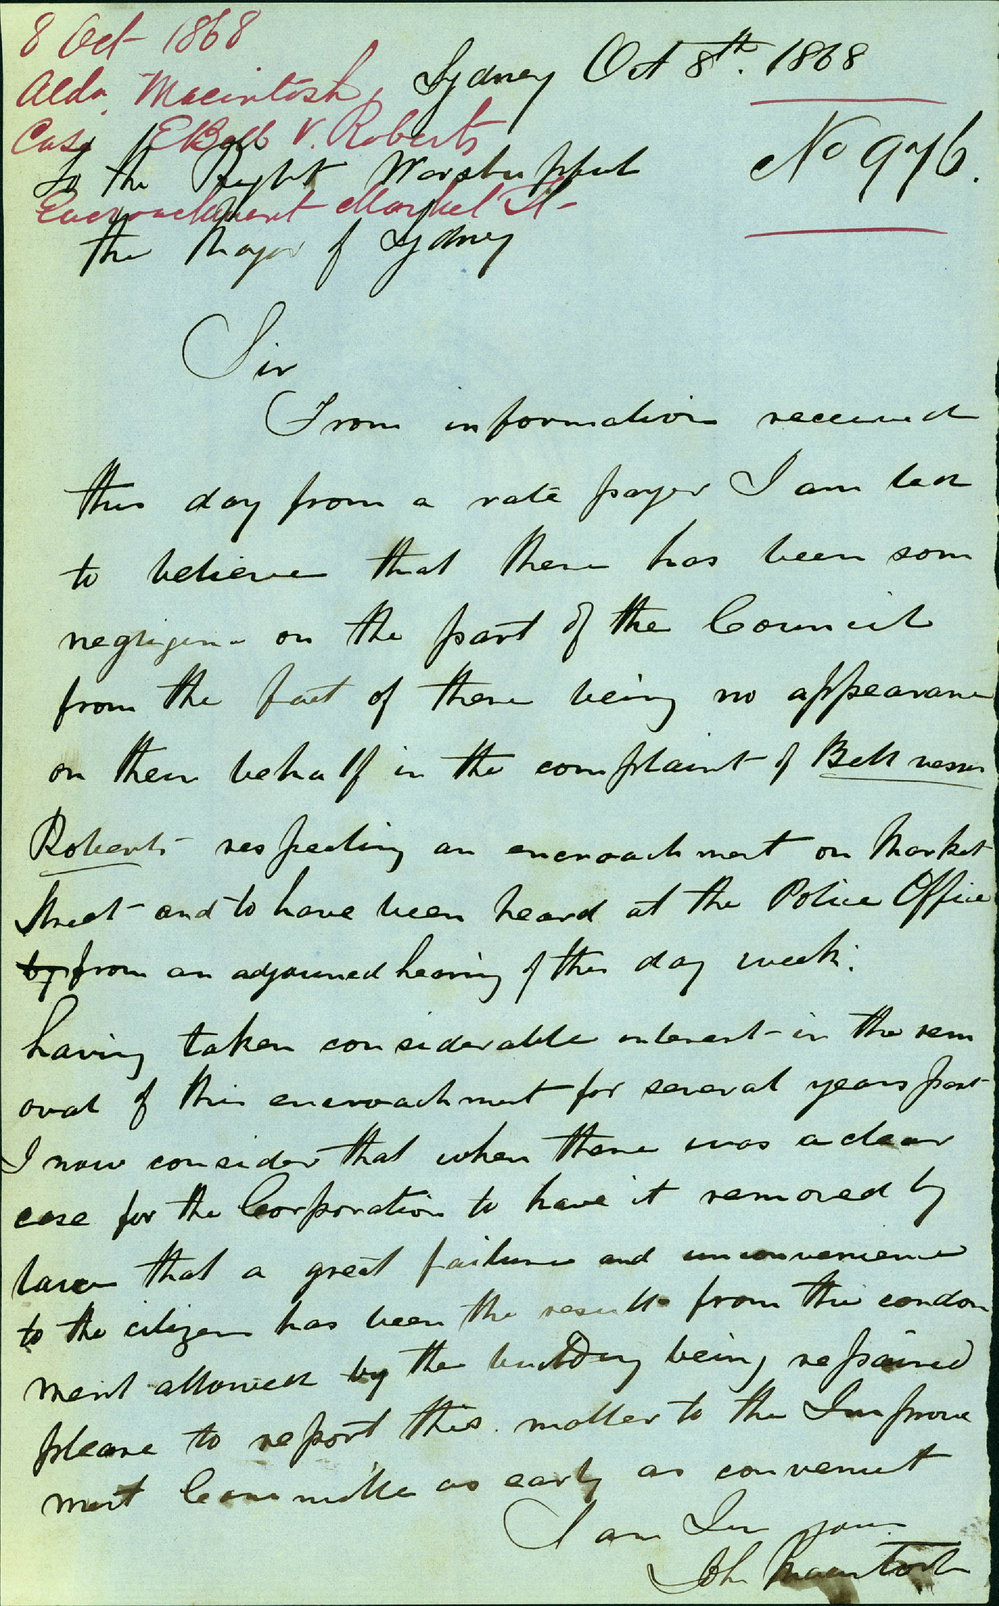 8 Oct 1868
Aldn Macintosh,
Sydney Oct 8th. 1868
Case Bell V. Roberts
No 976.
To the Right Worshipful
Encroachment Market St
the Mayor of Sydney
Sir
From information received
this day from a rate payer I am led
to believe that there has been som
negligence on the part of the Council
from the fact of there being no appearance
on their behalf in the complaint of Bell versus
Roberts respecting an encroachment on Market
Street and to have been heard at the Police Office
by from an adjourned hearing of this day week.
having taken considerable interest in the rem
oval of this encroachment for several years past
I now consider that when there was a clear
case for the Corporation to have it removed by
law that a great failure and inconvenience
to the citizens has been the result from the condon
ment allowed by the building being repaired
please to report this matter to the Improve
ment Committee as early as convenient
I am Sir yours
John Macintosh